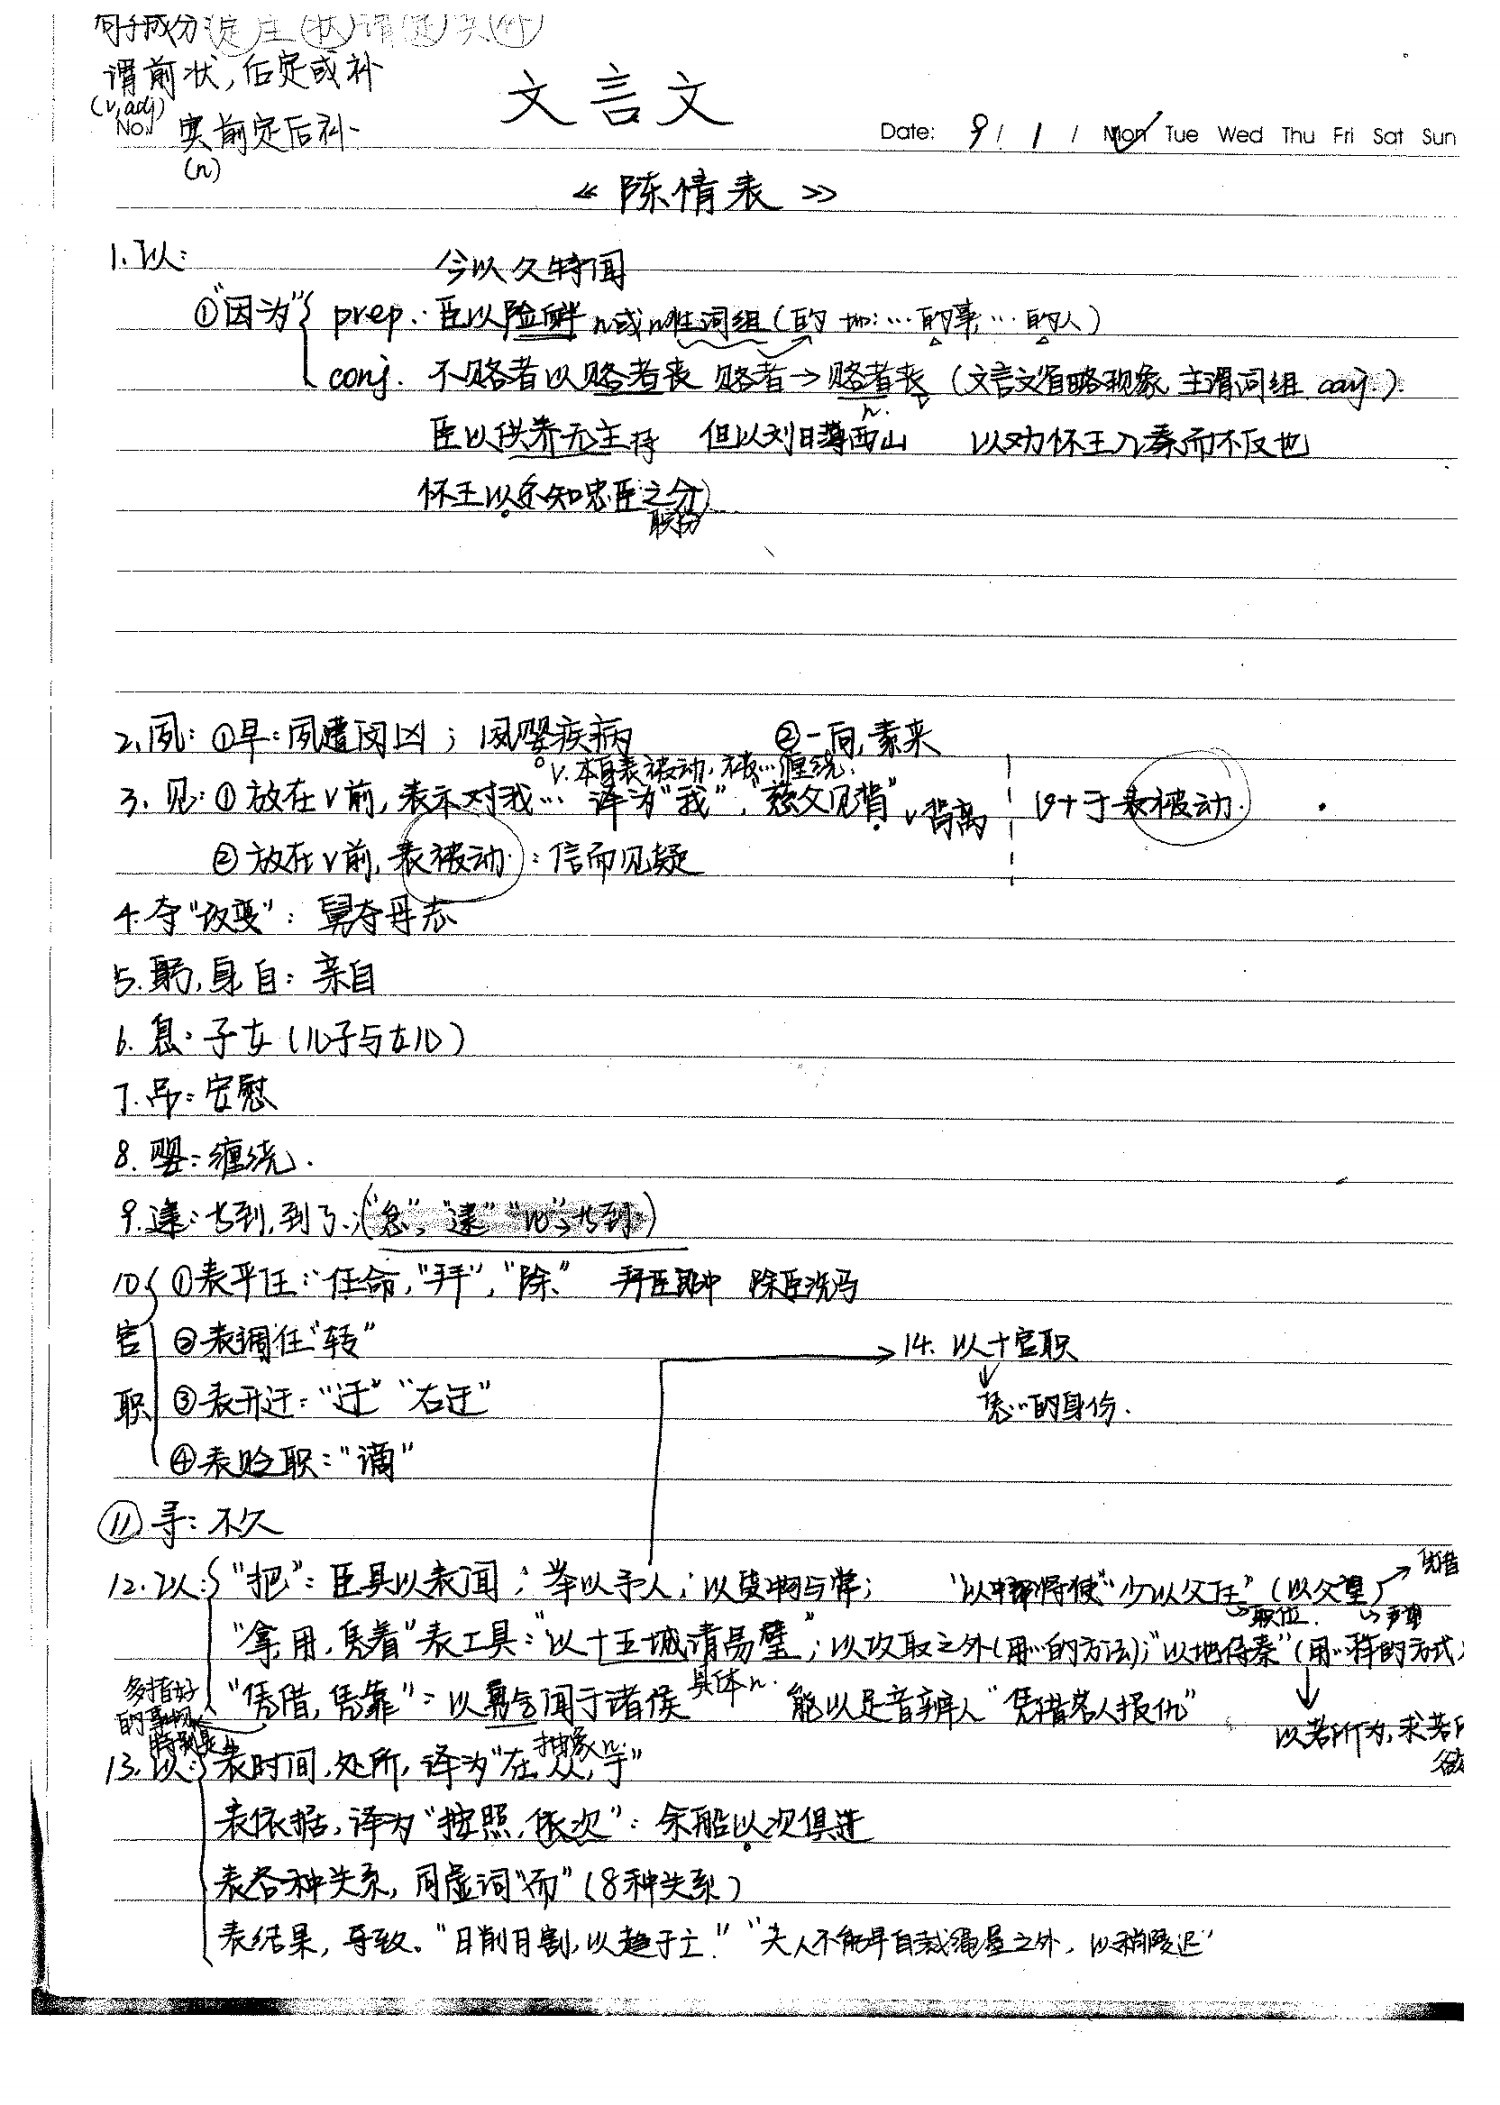 句子成分:(定)主(状)谓(定)宾(补)
谓前状,后定或补
(v,adj)
No.
宾前定后补
(n)
文言文
Date: 9 / 1 / Mon Tue Wed Thu Fri Sat Sun
《陈情表》
1.以:
今以久特闻
①"因为" prep.: 臣以险衅 n或n性词组(的 …的事,…的人)
conj. 不赂者以赂者丧 赂者→赂者丧 (文言文省略现象,主谓词组 conj.)
n.
臣以供养无主 但以刘日薄西山 以劝怀王入秦而不反也
怀王以不知忠臣之分
职份
2.夙: ①早:夙遭闵凶; 夙婴疾病 ②一向,素来
v.本身表被动,被…缠绕.
3.见: ①放在v前,表示对我… 译为"我","慈父见背" v背离 v+于表被动.
②放在v前,表被动:信而见疑
4.夺"改变": 舅夺母志
5.躬,身自: 亲自
6.息: 子女(儿子与女儿)
7.吊: 安慰
8.婴: 缠绕.
9.逮: 等到,到了
10 官职
①表平任: 任命,"拜","除" 拜臣郎中 除臣洗马
②表调任"转"
③表升迁: "迁" "右迁"
④表贬职: "谪"
14. 以+官职
凭…的身份.
⑪寻: 不久
12.以: "把": 臣具以表闻; 举以予人; "少以父任" (以父望)
职位.
"拿,用,凭着"表工具: "以十五城请易璧"; 以攻取之外(用…的方法); (用…样的方式)
具体n.
"凭借,凭靠": 以勇气闻于诸侯 能以足音辨人
多指好的事物
抽象n.
以若所为,求若所欲
13.以: 表时间,处所,译为"在,从,于"
表依据,译为"按照,依次": 余船以次俱进
表各种关系,同虚词"而"(8种关系)
表结果,导致。"日削月割,以趋于亡" "夫人不能早自裁绳墨之外,以稍陵迟"